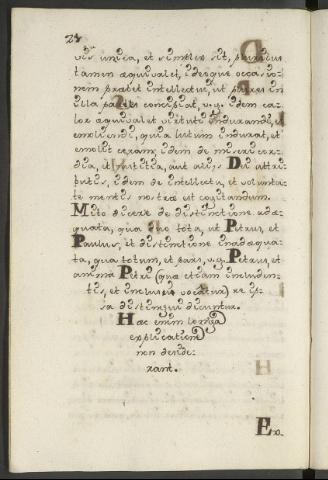 28
vis unica, et simplex sit, pluribus
tamen æquivalet, ideoque occasio-
nem præbet intellectui, ut plures in
illa partes concipiat, v.g. idem ca-
lor æquivalet virtuti indurandi, et
emoliendi, quia lutum indurat, et
emollit ceram; idem de misericor-
dia, et justitia, aut aliis Dei attri-
butis, idem de intellectu, et volunta-
te mentis nostræ est cogitandum.
Mito dicere de distinctione adæ-
quata, qua duo tota, ut Petrus, et
Paulus; et distinctione inadæqua-
ta, qua totum, et pars, v.g. Petrus, et
anima Petri (quæ etiam includen-
tis, et inclusi vocatur) re ip-
sa distingui dicuntur.
Hæc enim longa
explicatione
non deside-
rant.
Ex.